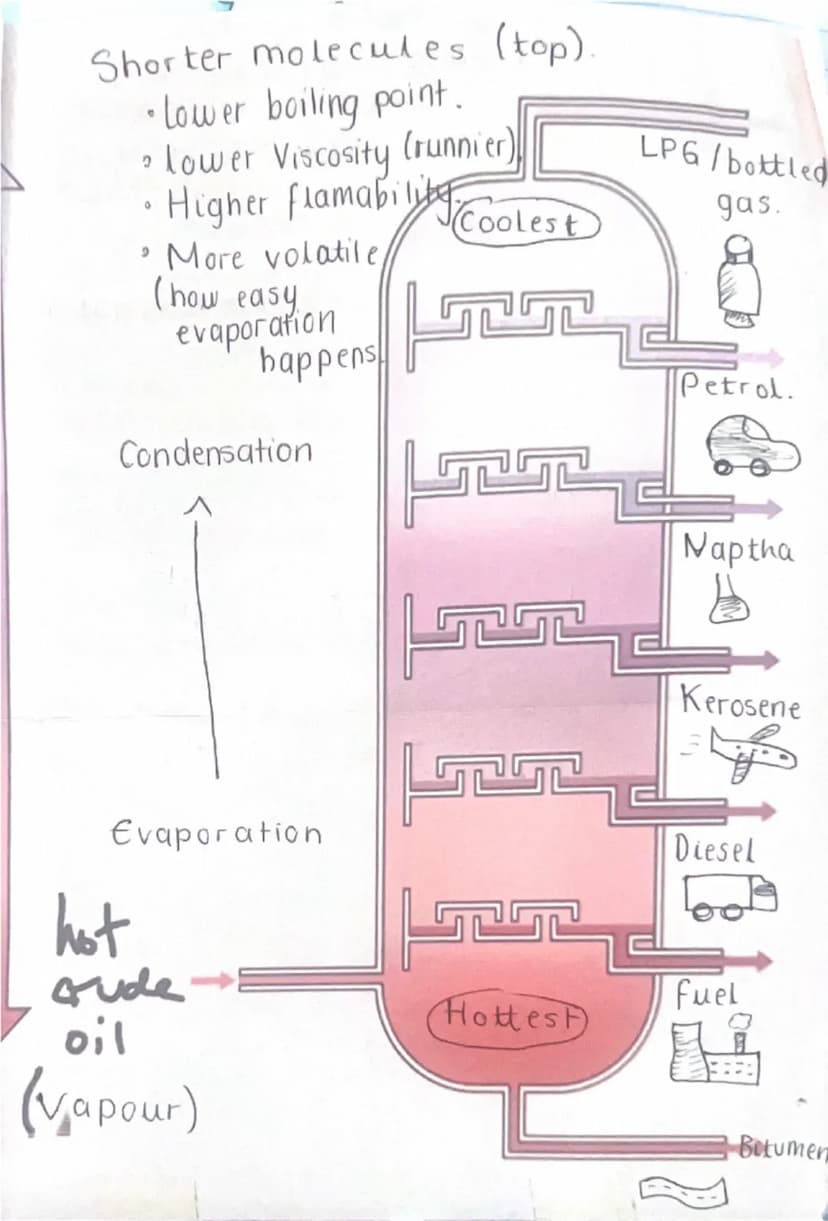 Shorter molecules (top).
• Lower boiling point.
• lower Viscosity (runnier)
• Higher flamability.
• More volatile
(how easy
evaporation
happens
Coolest
LPG/bottled
gas.
Petrol.
Condensation
Naptha
Kerosene
Evaporation
Diesel
hot
crude
oil
(Vapour)
Hottest
Fuel
Bitumen